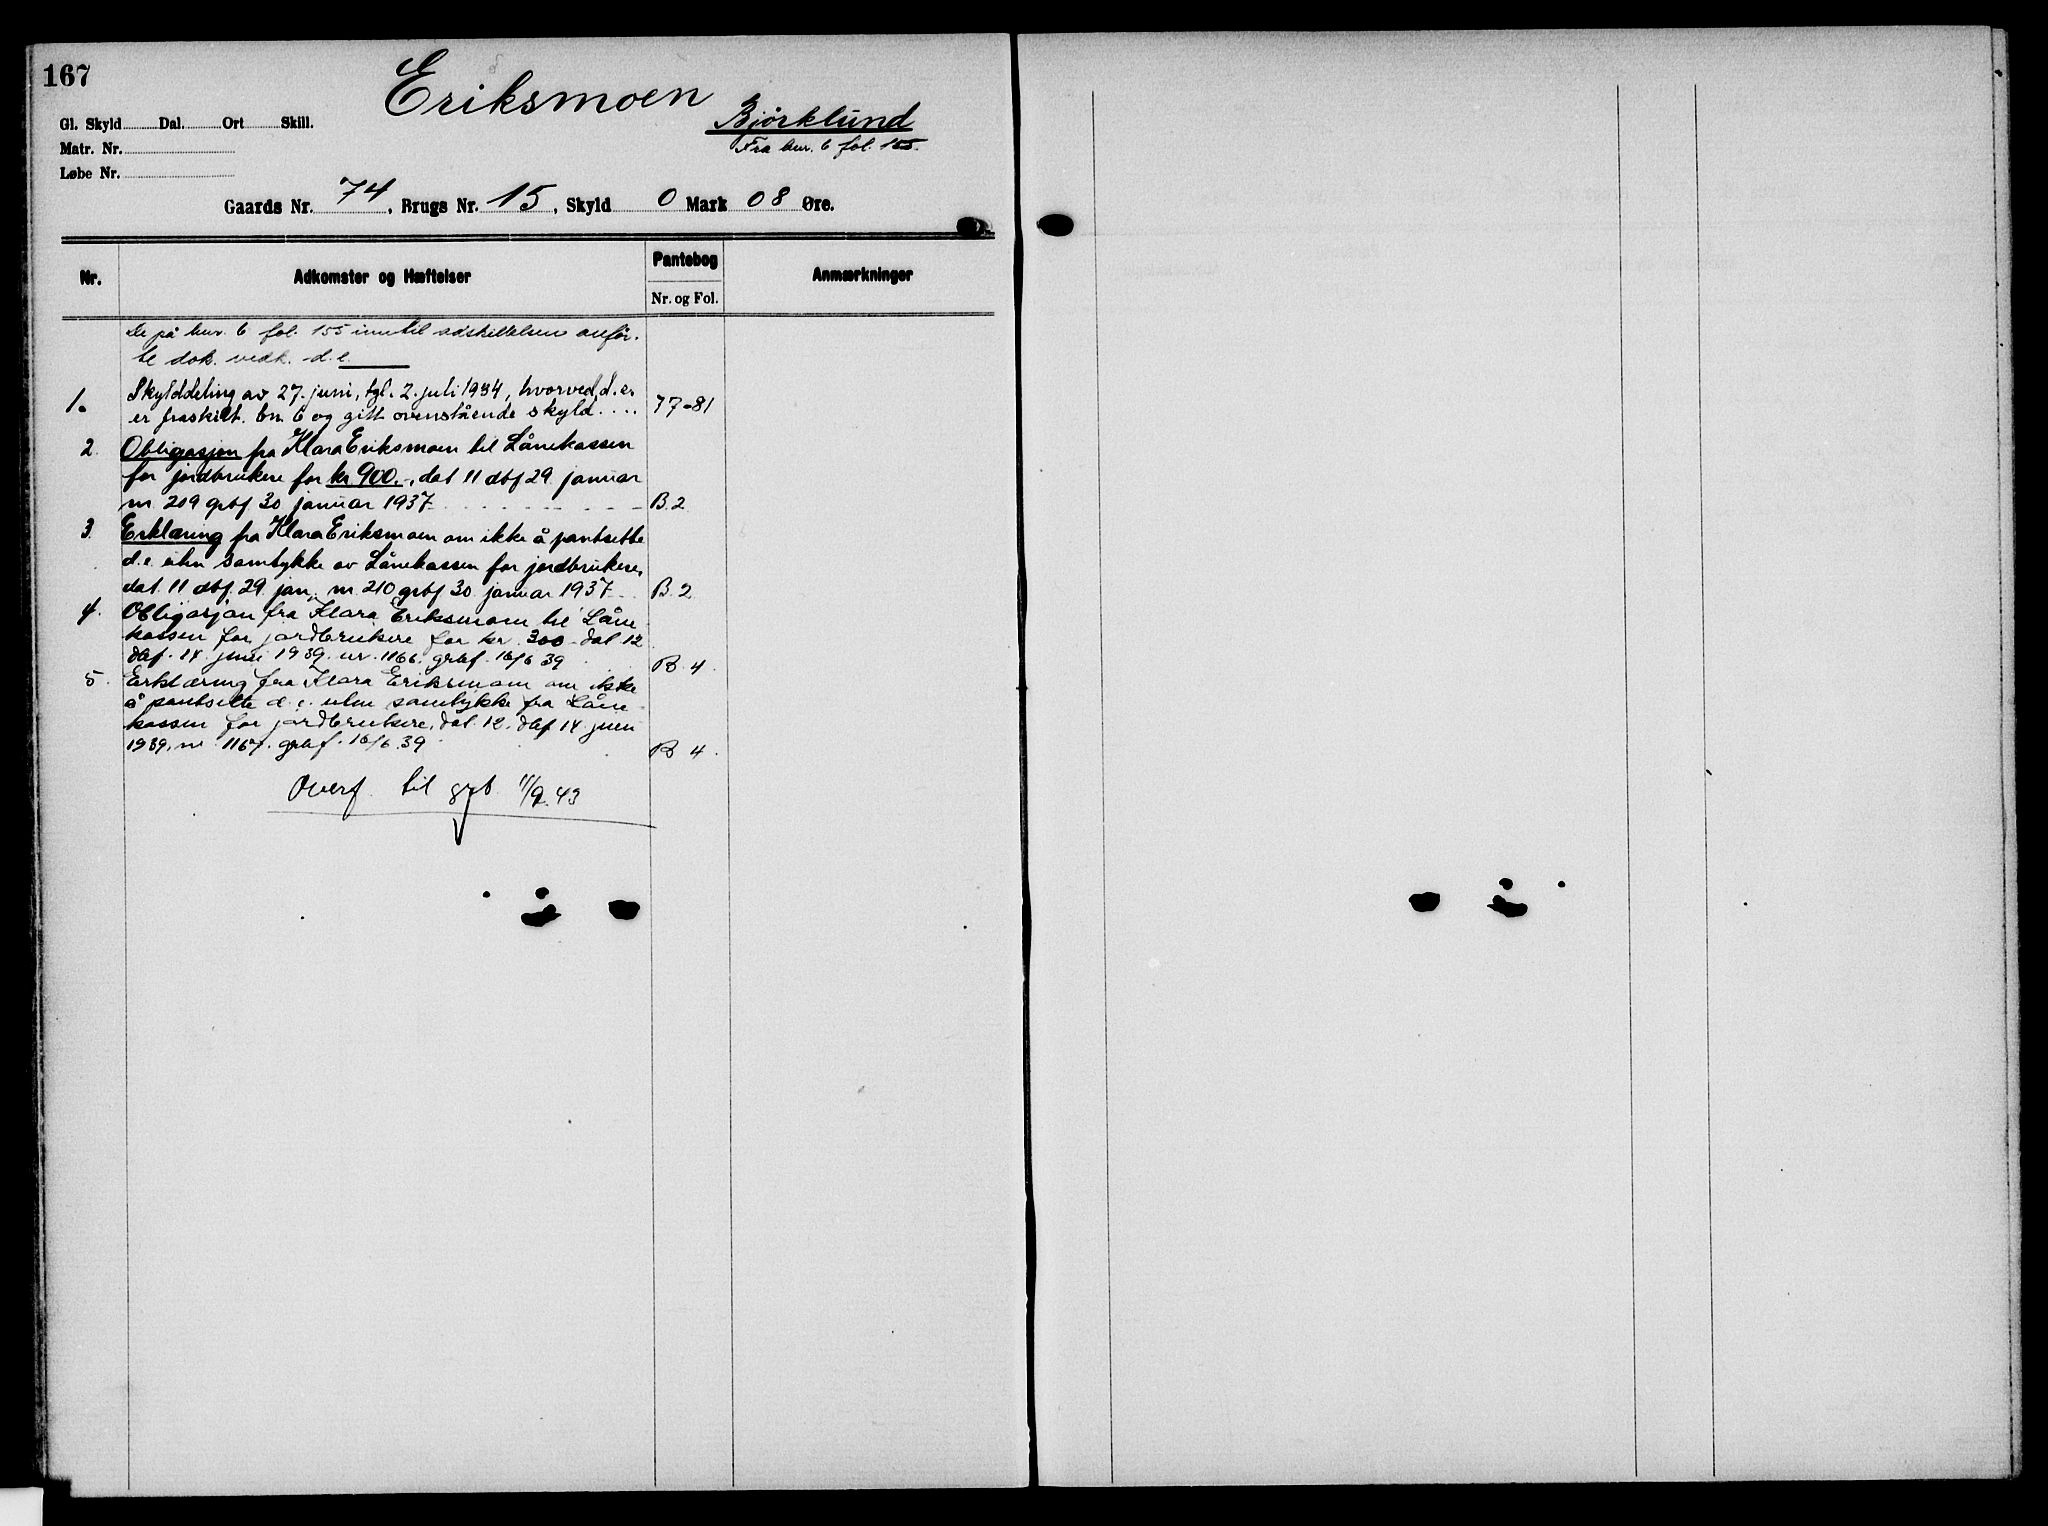 167
Eriksmoen
Bjørklund
Fra bnr. 6 fol. 155.
Gl. Skyld Dal. Ort Skill.
Matr. Nr.
Løbe Nr.
Gaards Nr. 74, Brugs Nr. 15, Skyld 0 Mark 08 Øre.
Nr. Adkomster og Hæftelser Pantebog Anmærkninger
Nr. og Fol.
De på bnr. 6 fol. 155 inntil utskillelsen anfør-
te dok. vedk. d.e.
1. Skylddeling av 27. juni, tgl. 2. juli 1934, hvorved d.e.
er fraskilt bn. 6 og gitt ovenstående skyld.... 77-81
2. Obligasjon fra Klara Eriksmoen til Lånekassen
for jordbrukere for kr 900.-, dat 11 dbf 29. januar
nr. 209 grbf 30 januar 1937 B.2
3. Erklæring fra Klara Eriksmoen om ikke å pantsette
d.e. uten samtykke av Lånekassen for jordbrukere,
dat. 11 dbf. 29. jan, nr. 210 grbf 30. januar 1937 B.2
4. Obligasjon fra Klara Eriksmoen til Låne-
kassen for jordbrukere for kr. 300.- dat. 12
dbf. 14. juni 1939. nr. 1166. grbf. 16/6 39 B. 4.
5. Erklæring fra Klara Eriksmoen om ikke
å pantsette d.e. uten samtykke fra Låne-
kassen for jordbrukere, dat. 12. dbf 14. juni
1939, nr. 1167. grbf. 16/6.39 B 4.
Overf. til grb. 11/9.43